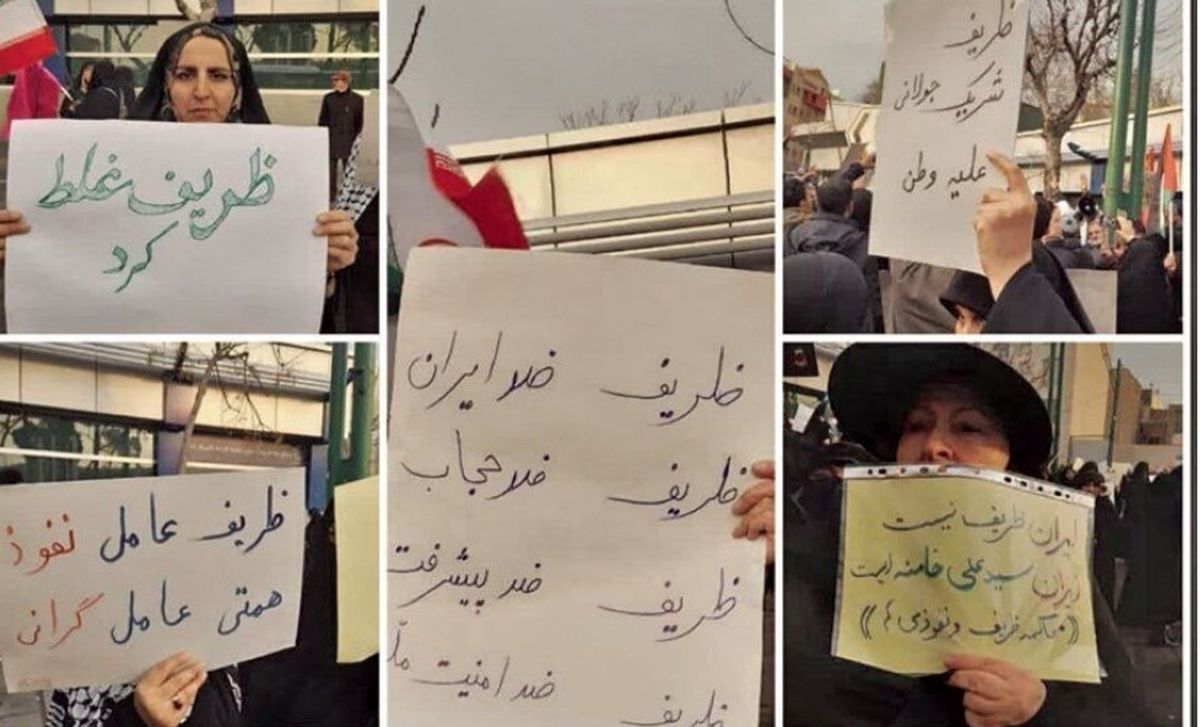 ظریف غلط
کرد
ظریف ضد ایران
ظریف ضد حجاب
ظریف ضد پیشرفت
ظریف ضد امنیت
ظریف
شریک جولانی
علیه وطن
ظریف عامل نفوذ
همتی عامل گرانی
ایران ظریف نیست
ایران سید علی خامنه ایست
((محاکمه ظریف و نفوذی